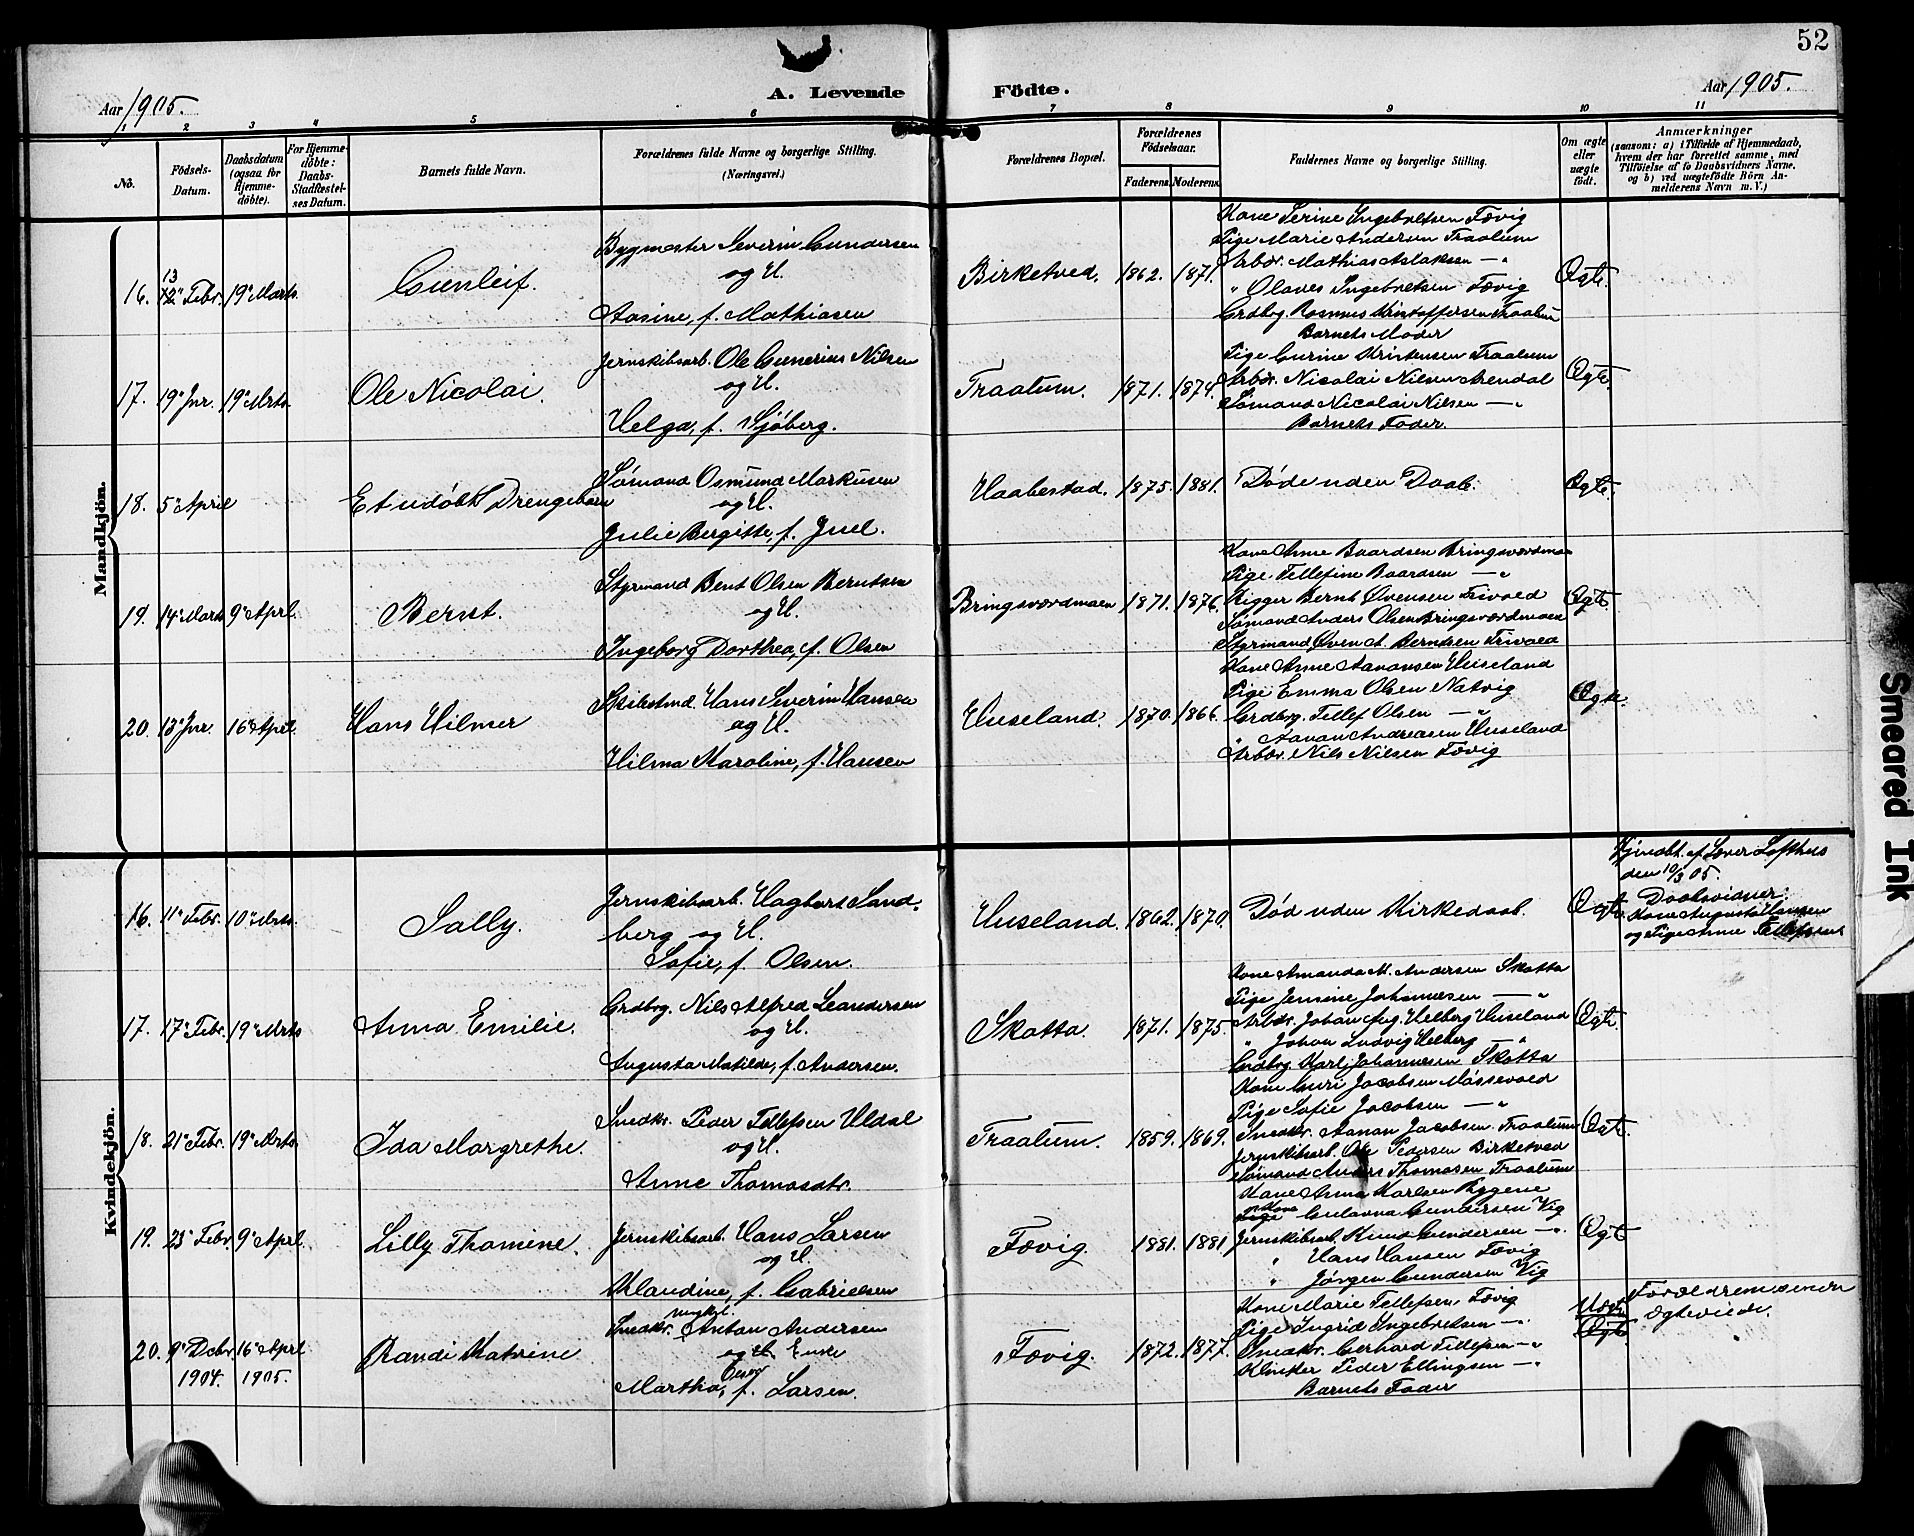 52
Aar 1905.
A. Levende Födte.
Aar 1905.
1 2 3 4 5 6 7 8 9 10 11
No.
Födsels-Datum.
Daabsdatum (ogsaa for Hjemme-döbte).
For Hjemme-döbte: Daabs-Stadfæstel-ses Datum.
Barnets fulde Navn.
Forældrenes fulde Navne og borgerlige Stilling. (Næringsvei.)
Forældrenes Bopæl.
Forældrenes Födselsaar.
Faderens. Moderens.
Faddernes Navne og borgerlige Stilling.
Om ægte eller uægte födt.
Anmærkninger
(saasom: a) i Tilfælde af Hjemmedaab, hvem der har forrettet samme, med Tilföielse af to Daabsvidners Navne, og b) ved uægtefödte Börn An-melderens Navn m. V.)
Mandkjön.
16. 13 12' Febr. 19' Marts
Gunleif.
Bygmester Severin Gundersen
og H.
Aasine, f. Mathiasen
Birketved. 1862. 1871.
Kone Serine Ingebretsen Fævig
Pige Marie Andersen Traalum
Arbdr. Mathias Aslaksen — "
" Olaves Ingebretsen Fævig
Grdbrg. Rasmus Kristoffersen Traalum
Barnets Moder
Ægte.
17. 19' Jnr. 19' Mrts.
Ole Nicolai.
Jernskibsarb. Ole Gunerius Nilsen
og H.
Helga, f. Sjöberg.
Traalum. 1871. 1874.
Pige Gurine Kristensen Traalum
Arbdr. Nicolai Nilsen Arendal
Sömand Nicolai Nilsen — "
Barnets Fader.
Ægte
18. 5' April
Et udöbt Drengebarn
Sömand Osmund Markusen
og H.
Julie Bergitte, f. Juel.
Haabestad. 1875. 1881.
Døde uden Daab.
Ægte.
19. 14' Marts 9' Aprl.
Bernt.
Styrmand Bent Olsen Berntsen
og H.
Ingeborg Dorthea, f. Olsen
Bringsværdmoen 1871. 1876.
Kone Anne Baardsen Bringsværdmoen
Pige Tellefine Baardsen — "
Rigger Bernt Øvensen Trivold
Sömand Anders Olsen Bringsværdmoen
Styrmand Øven A. Berntsen Trivold
Ægte
20. 13' Jnr. 16' April.
Hans Hilmer
Skibstmd. Hans Severin Hansen
og H.
Hilma Karoline, f. Hansen
Huseland. 1870. 1866.
Kone Anne Aanonsen Huseland
Pige Emma Olsen Natvig
Grdbrg. Tellef Olsen — "
" Aanon Andreasen Huseland
Arbdr. Nils Nilsen Fævig
Ægte.
Kvindekjön.
16. 11' Febr. 10' Mrts.
Sally.
Jernskibsarb. Hagbart Sand-
berg og H.
Sofie, f. Olsen.
Huseland. 1862. 1870.
Död uden Kirkedaab.
Ægte
Hjmdbt. af Lærer Lofthus
den 10/3 05.
Daabsvidner:
Kone Augusta Hansen
og Pige Anne Tellefsen
17. 17' Febr. 19' Mrts
Anna Emilie.
Grdbrg. Nils Alfred Leandersen
og H.
Augusta Matilde, f. Andersen.
Skatta. 1871. 1875.
Kone Amanda M. Andersen Skatta
Pige Jensine Johannesen — "
Arbdr. Johan Aug. Helberg Huseland
" Johan Ludvig Helberg — "
Grdbrg. Karl Johannesen Skatta
Ægte.
18. 21' Febr. 19' Mrts.
Ida Margrethe.
Snedkr. Peder Tellefsen Uldal
og H.
Anne Thomasdtr.
Traalum. 1859. 1869.
Kone Guri Jacobsen Måssevold
Pige Sofie Jacobsen — "
Snedkr. Aanon Jacobsen Traalum
Jernskibsarb. Ole Pedersen Birketved
Sömand Anders Thomasen Traalum
Ægt.
19. 23' Febr. 9' Aprl.
Lilly Thomine.
Jernskibsarb. Hans Larsen
og H.
Klandine, f. Gabrielsen
Fævig. 1881. 1881.
Kone Anna Karlsen Rygene
Kone Gulovna Gundersen Vig
Jernskibsarb. Knud Gundersen — "
" Hans Hansen Fævig
" Jörgen Gundersen Vig
Ægt
20. 9' Decbr. 16' Aprl
1904. 1905.
Randi Katrine
Ungkrl.
Snedkr. Anton Andersen
og Enke
Martha, f. Larsen.
Fævig. 1872. 1877.
Kone Marie Tellefsen Fævig
Pige Ingrid Ingebretsen — "
Snedkr. Gerhard Tellefsen — "
Klinker Peder Ellingsen — "
Barnets Fader
Uægt
Ægt
Forældrene senere
ægteviede.
Smeared Ink